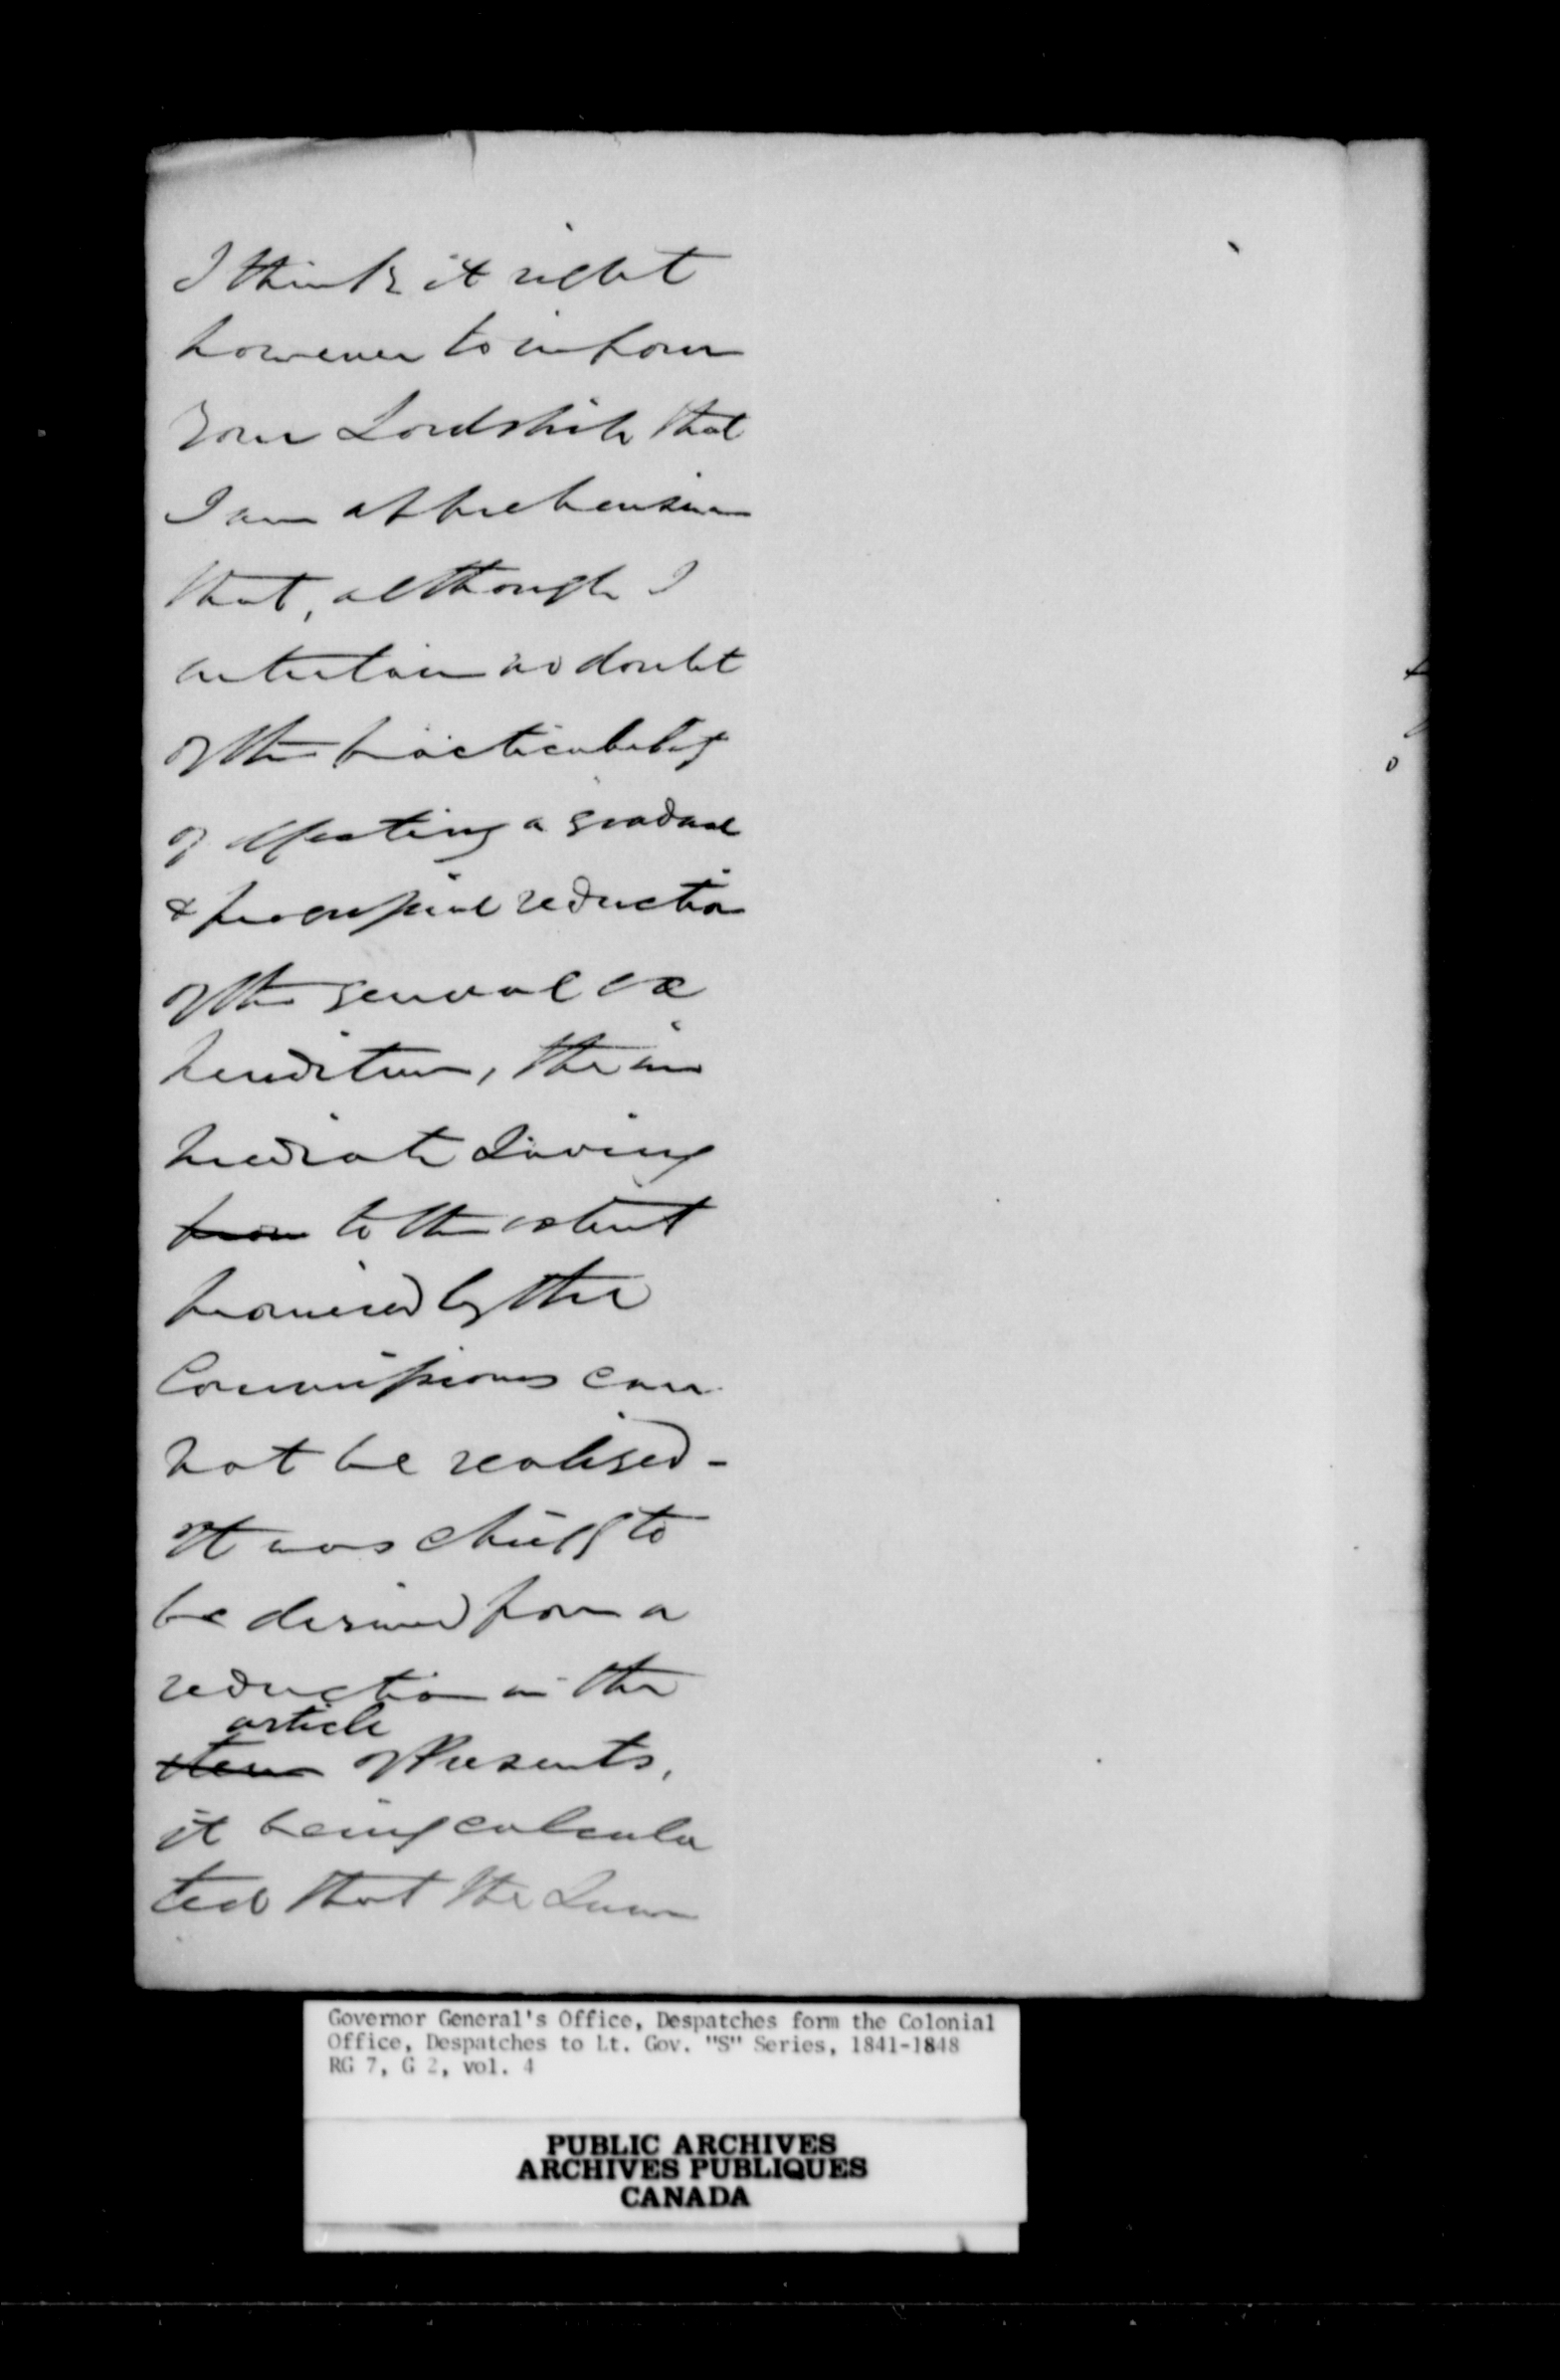 I think it right
however to inform
Your Lordship that
I am apprehensive
that, although I
entertain no doubt
of the practicability
of effecting a gradual
& progressive reduction
of the general ex
penditure, the im
mediate Saving
from to the extent
promised by the
Commissioners can
not be realised -
It was chiefly to
be derived from a
reduction in the
article
item of Presents,
it being calcula
ted that the Sum
Governor General's Office, Despatches form the Colonial
Office, Despatches to Lt. Gov. "S" Series, 1841-1848
RG 7, G 2, vol. 4
PUBLIC ARCHIVES
ARCHIVES PUBLIQUES
CANADA